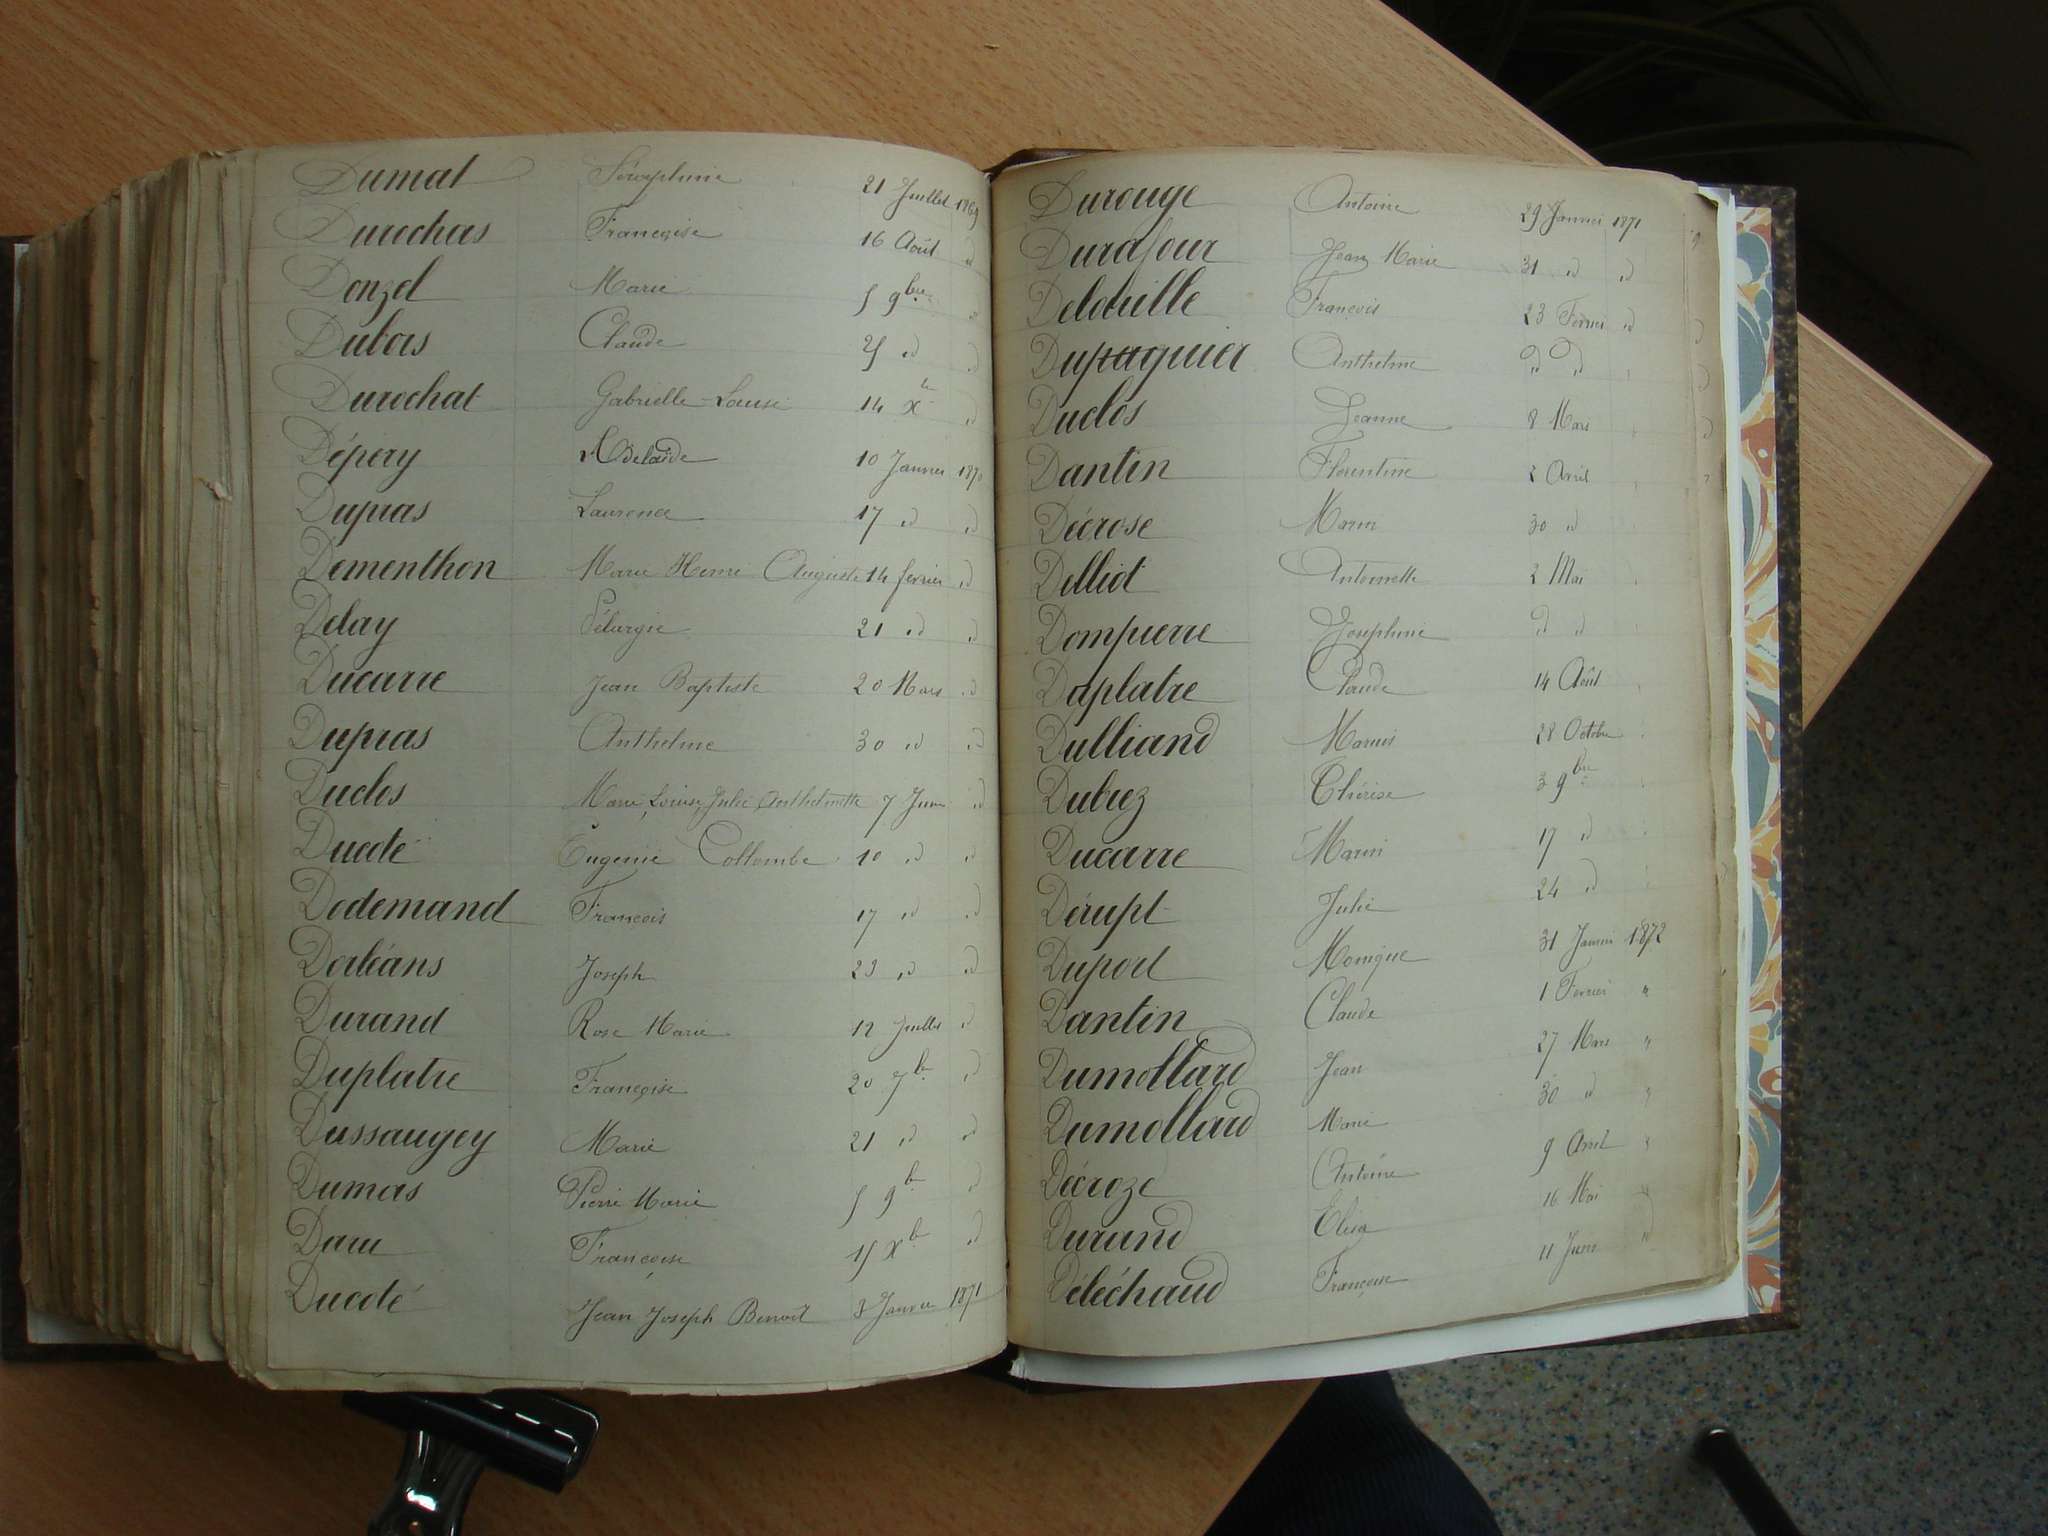 Dumal Séraphine 21 Juillet 1869
Durochas Françoise 16 Août id
Donzel Marie 5 9bre
Dubois Claude 25 id id
Durochat Gabrielle-Louise 14 Xbre id
Dépery Adelaïde 10 Janvier 1870
Dupras Laurence 17 id id
Dementhon Marie Henri Auguste 14 fevrier id
Delay Pélargie 21 id id
Ducarre Jean Baptiste 20 Mars id
Dupras Anthelme 30 id id
Duclos Marie Louise Julie Anthelmette 7 Juin id
Ducoté Eugenie Collombe 10 id id
Dodemand François 17 id id
Dorléans Joseph 23 id id
Durand Rose Marie 12 Juillet id
Duplatre Françoise 20 7b id
Dussaugey Marie 21 id id
Dumas Pierre Marie 5 9b id
Daru Françoise 15 Xb id
Ducoté Jean Joseph Benoit 3 Janvier 1871
Durouge Antoine 29 Janvier 1871
Durafour Jean Marie 31 id id
Delouille François 23 Fevrier id
Dupaquier Anthelme id id
Duclos Jeanne 8 Mars
Dantin Florentine 2 Avril
Décrose Marin 30 id
Delliot Antoinette 2 Mai
Dompierre Josephine id id
Daplatre Claude 14 Août
Dulliand Marius 28 Octobre
Dubrez Thérèse 3 9bre
Ducarre Marin 17 id
Dérupt Julie 24 id
Duport Monique 31 Janvier 1872
Dantin Claude 1 Fevrier "
Dumollard Jean 27 Mars "
Dumollard Marie 30 id "
Décroze Antoine 9 Avril "
Durand Elisa 16 Mai "
Déléchaud Françoise 11 Juin "